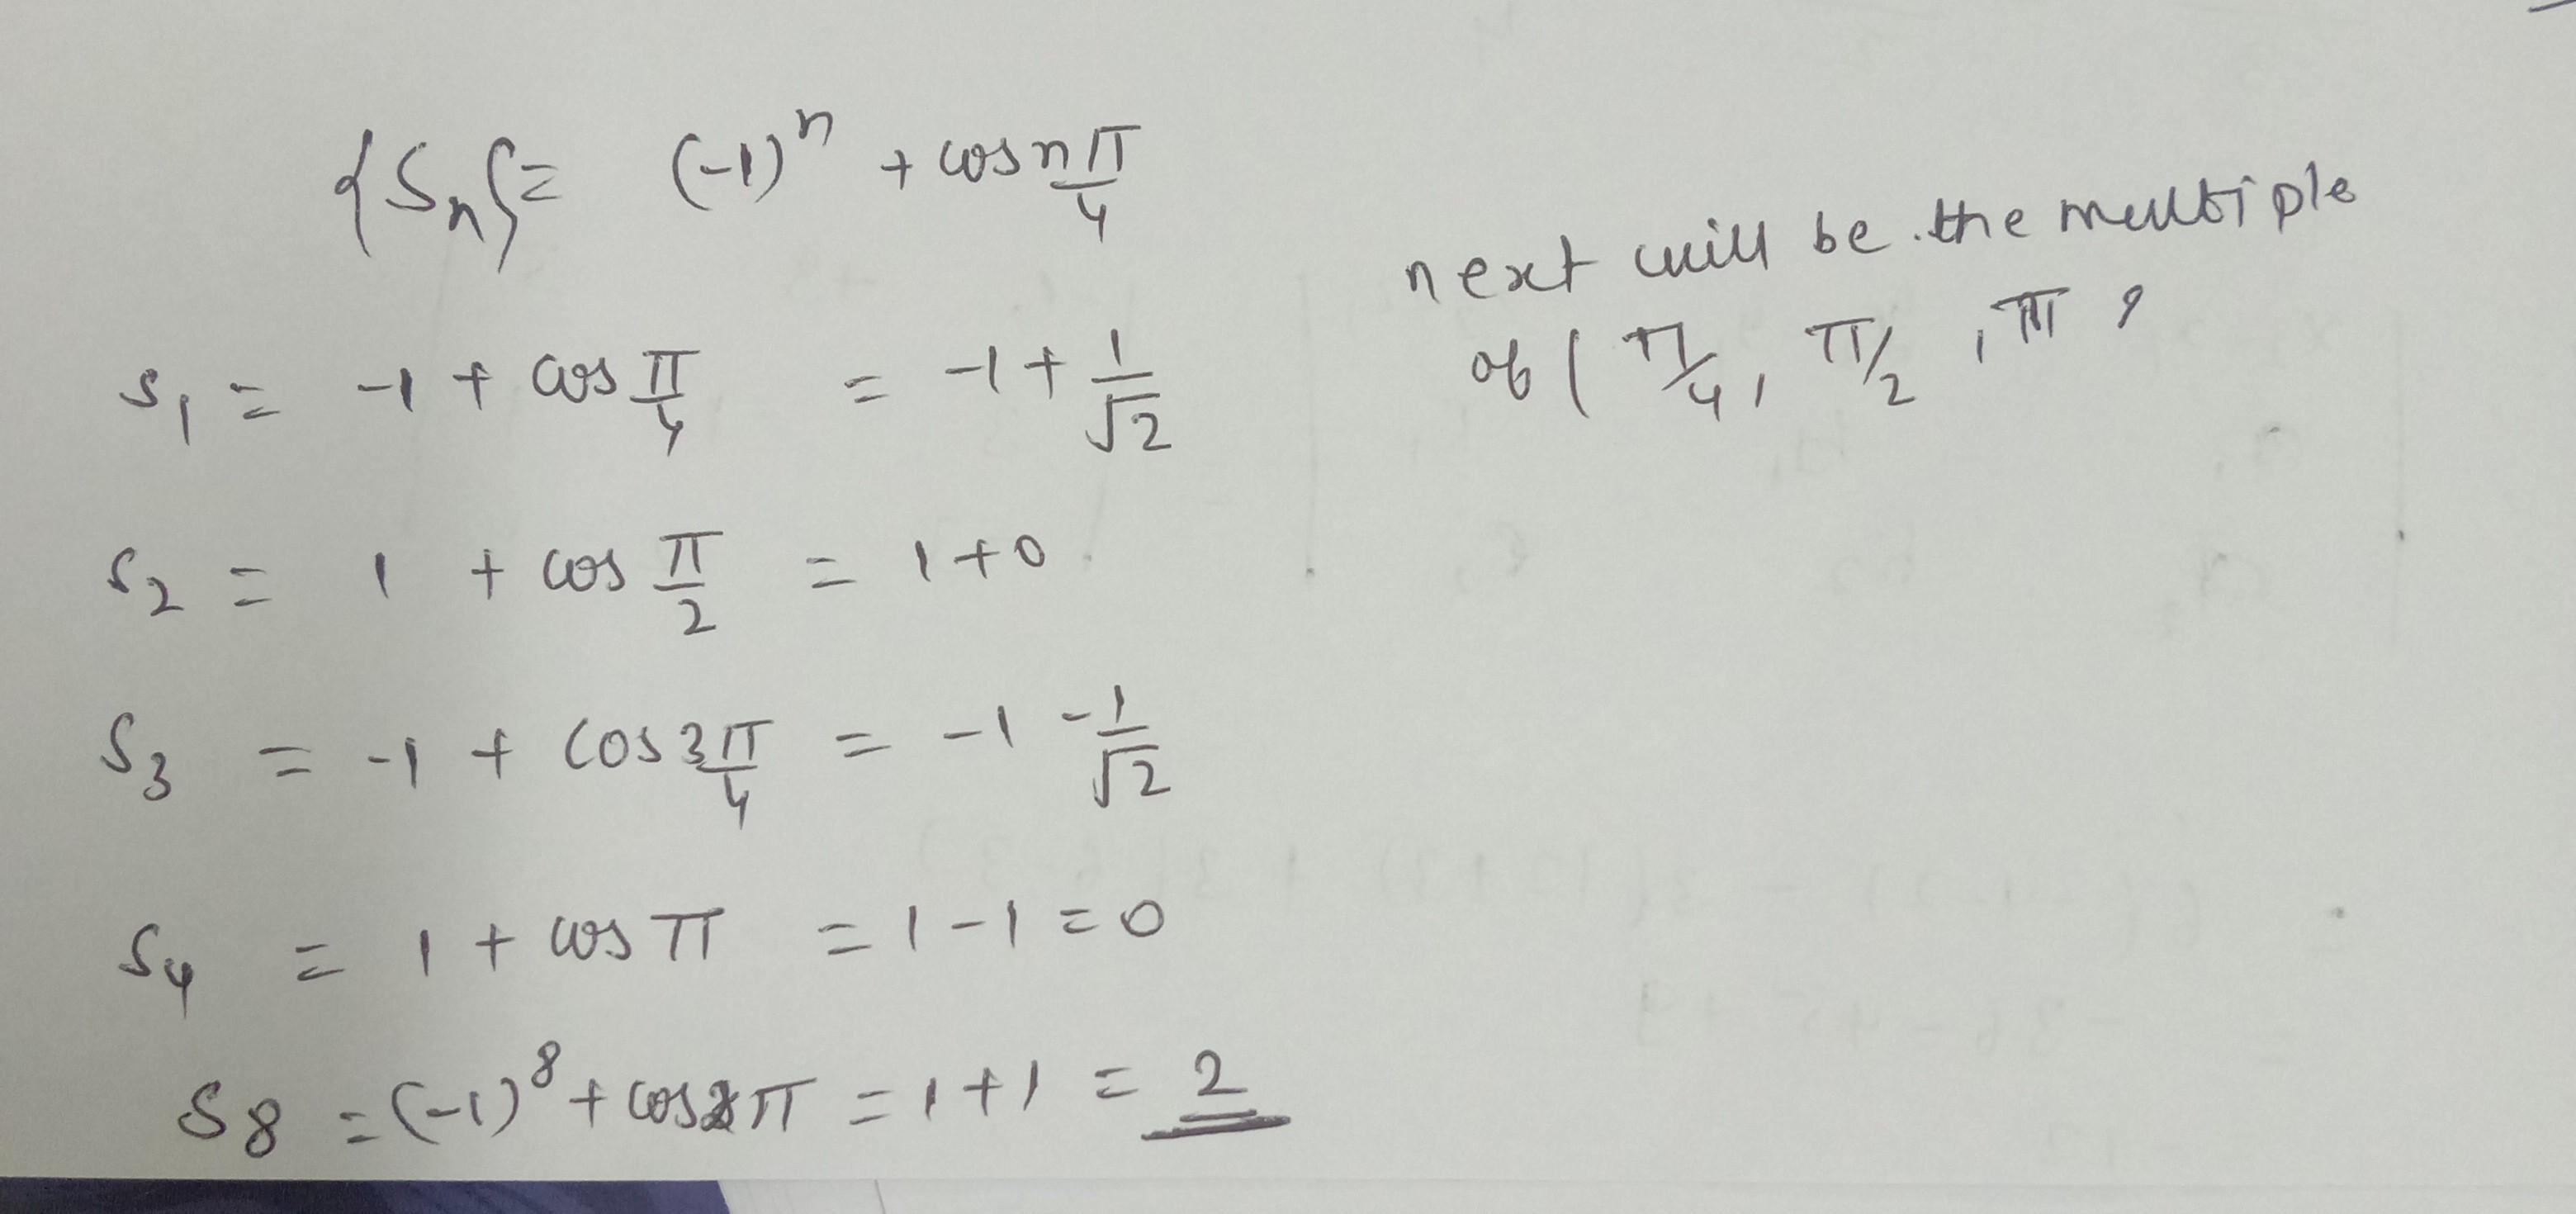 {Sn} = (-1)^n + cos nπ/4
next will be the multiple
of ( π/4, π/2, π,
S1 = -1 + cos π/4 = -1 + 1/√2
S2 = 1 + cos π/2 = 1+0
S3 = -1 + cos 3π/4 = -1 -1/√2
S4 = 1 + cos π = 1-1=0
S8 = (-1)^8 + cos2π = 1+1 = 2